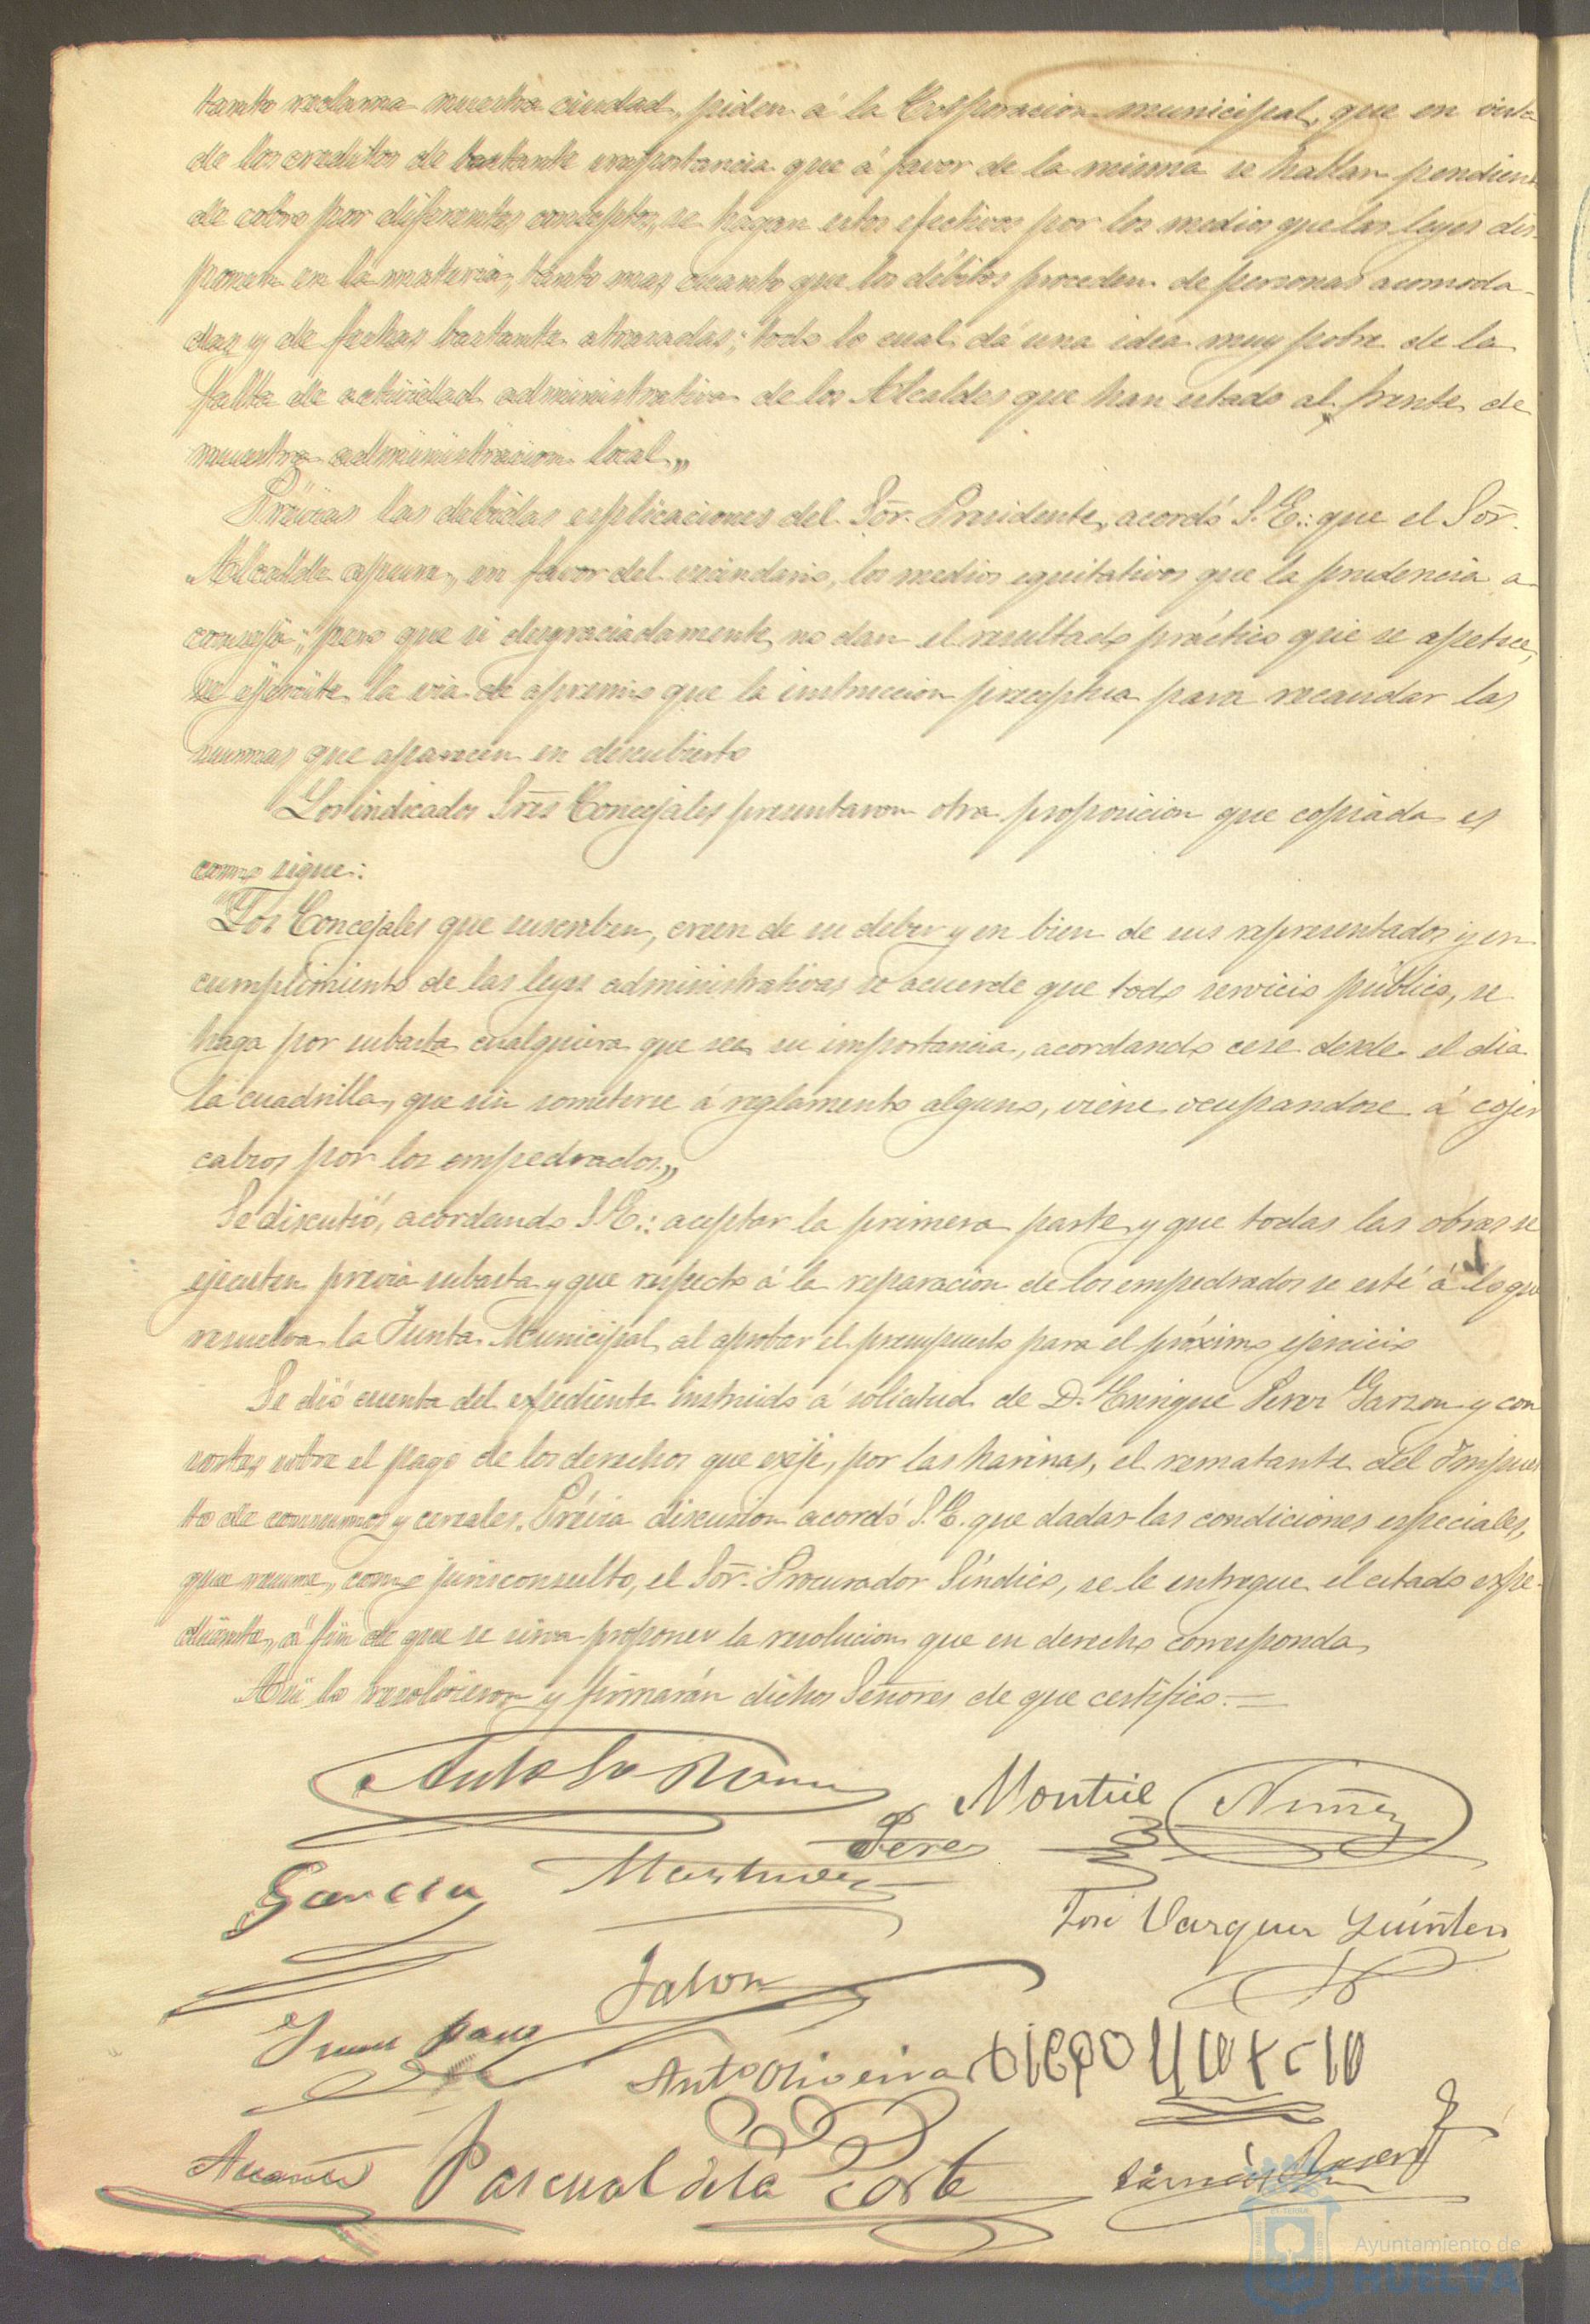 tanto reclama nuestra ciudad, piden á la Corporacion municipal, que en vista
de los creditos de bastante importancia que á favor de la misma se hallan pendien
de cobro por diferentes conceptos, se hagan estos efectivos por los medios que las leyes dis-
ponen en la materia, tanto mas, cuanto que los débitos proceden de personas acomoda-
das y de fechas bastante atrasadas; todo lo cual dá una idea muy pobre de la
falta de actividad administrativa de los Alcaldes que han estado al frente de
nuestra administracion local„
Prévias las debidas esplicaciones del Sor. Presidente, acordó S. E.: que el Sor.
Alcalde apure, en favor del vecindario, los medios equitativos que la prudencia a-
conseja; pero que si desgraciadamente, no dan el resultado práctico que se apetece,
se ejercite la via de apremio que la instruccion preceptua para recaudar las
sumas que aparecen en descubierto
Los indicados Sres Concejales presentaron otra proposicion que copiada es
como sigue:
"Los Concejales que suscriben, creen de su deber y en bien de sus representados y en
cumplimiento de las leyes administrativas se acuerde que todo servicio público, se
haga por subasta cualquiera que sea su importancia, acordando cese desde el dia
la cuadrilla, que sin someterse á reglamento alguno, viene ocupandose á cojer
calzos por los empedrados„
Se discutió, acordando S. E.: aceptar la primera parte y que todas las obras se
ejecuten previa subasta y que respecto á la reparacion de los empedrados se esté á lo que
resuelva la Junta Municipal al aprobar el presupuesto para el próximo ejercicio
Se dió cuenta del expediente instruido á solicitud de D. Enrique Perez Garzon y con
sortes, sobre el pago de los derechos que exije, por las harinas, el rematante del Impues
to de consumos y cereales. Prévia discusion acordó S. E. que dadas las condiciones especiales,
que reune, como jurisconsulto, el Sor. Procurador Síndico, se le entregue el citado expe-
diente, á fin de que se sirva proponer la resolucion que en derecho corresponda,
Así lo resolvieron y firmarán dichos Señores de que certifico.=
Montiel Nuñez
Perez
Garcia Martinez
José Vazquez
Jalon
Antº Oliveira Diego
Pascual de la Corte
Ayuntamiento de
HUELVA